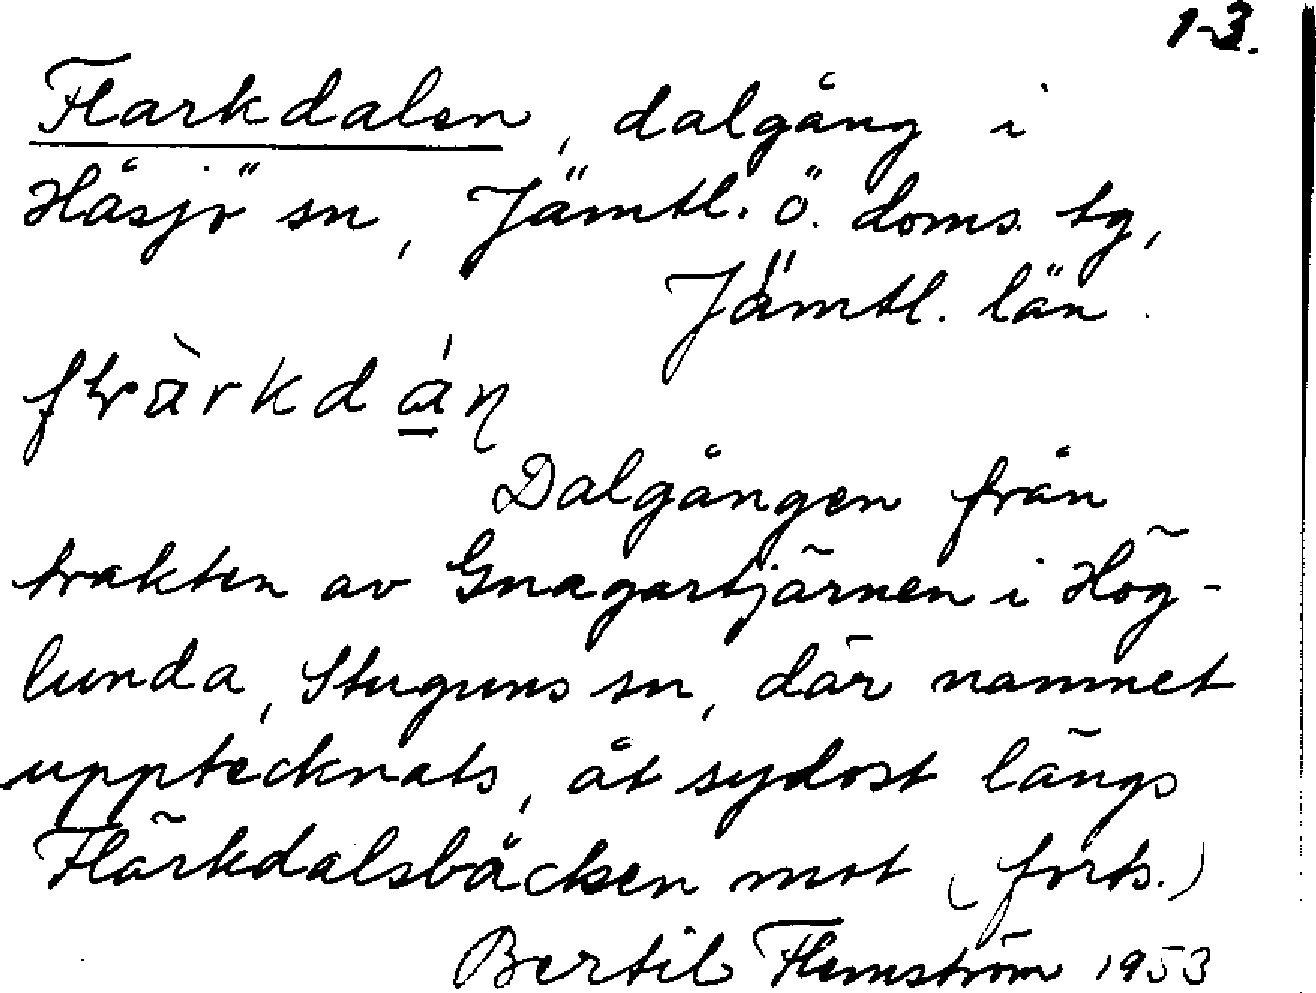 1-3.
Flarkdalen, dalgång i
Håsjö sn, Jämtl. ö. doms. tg,
Jämtl. län.
Dalgången från
trakten av Gnagartjärnen i Hög-
lunda, Stuguns sn, där namnet
upptecknats, åt sydost längs
Flärkdalsbäcken mot (forts.)
Bertil Flemström 1953